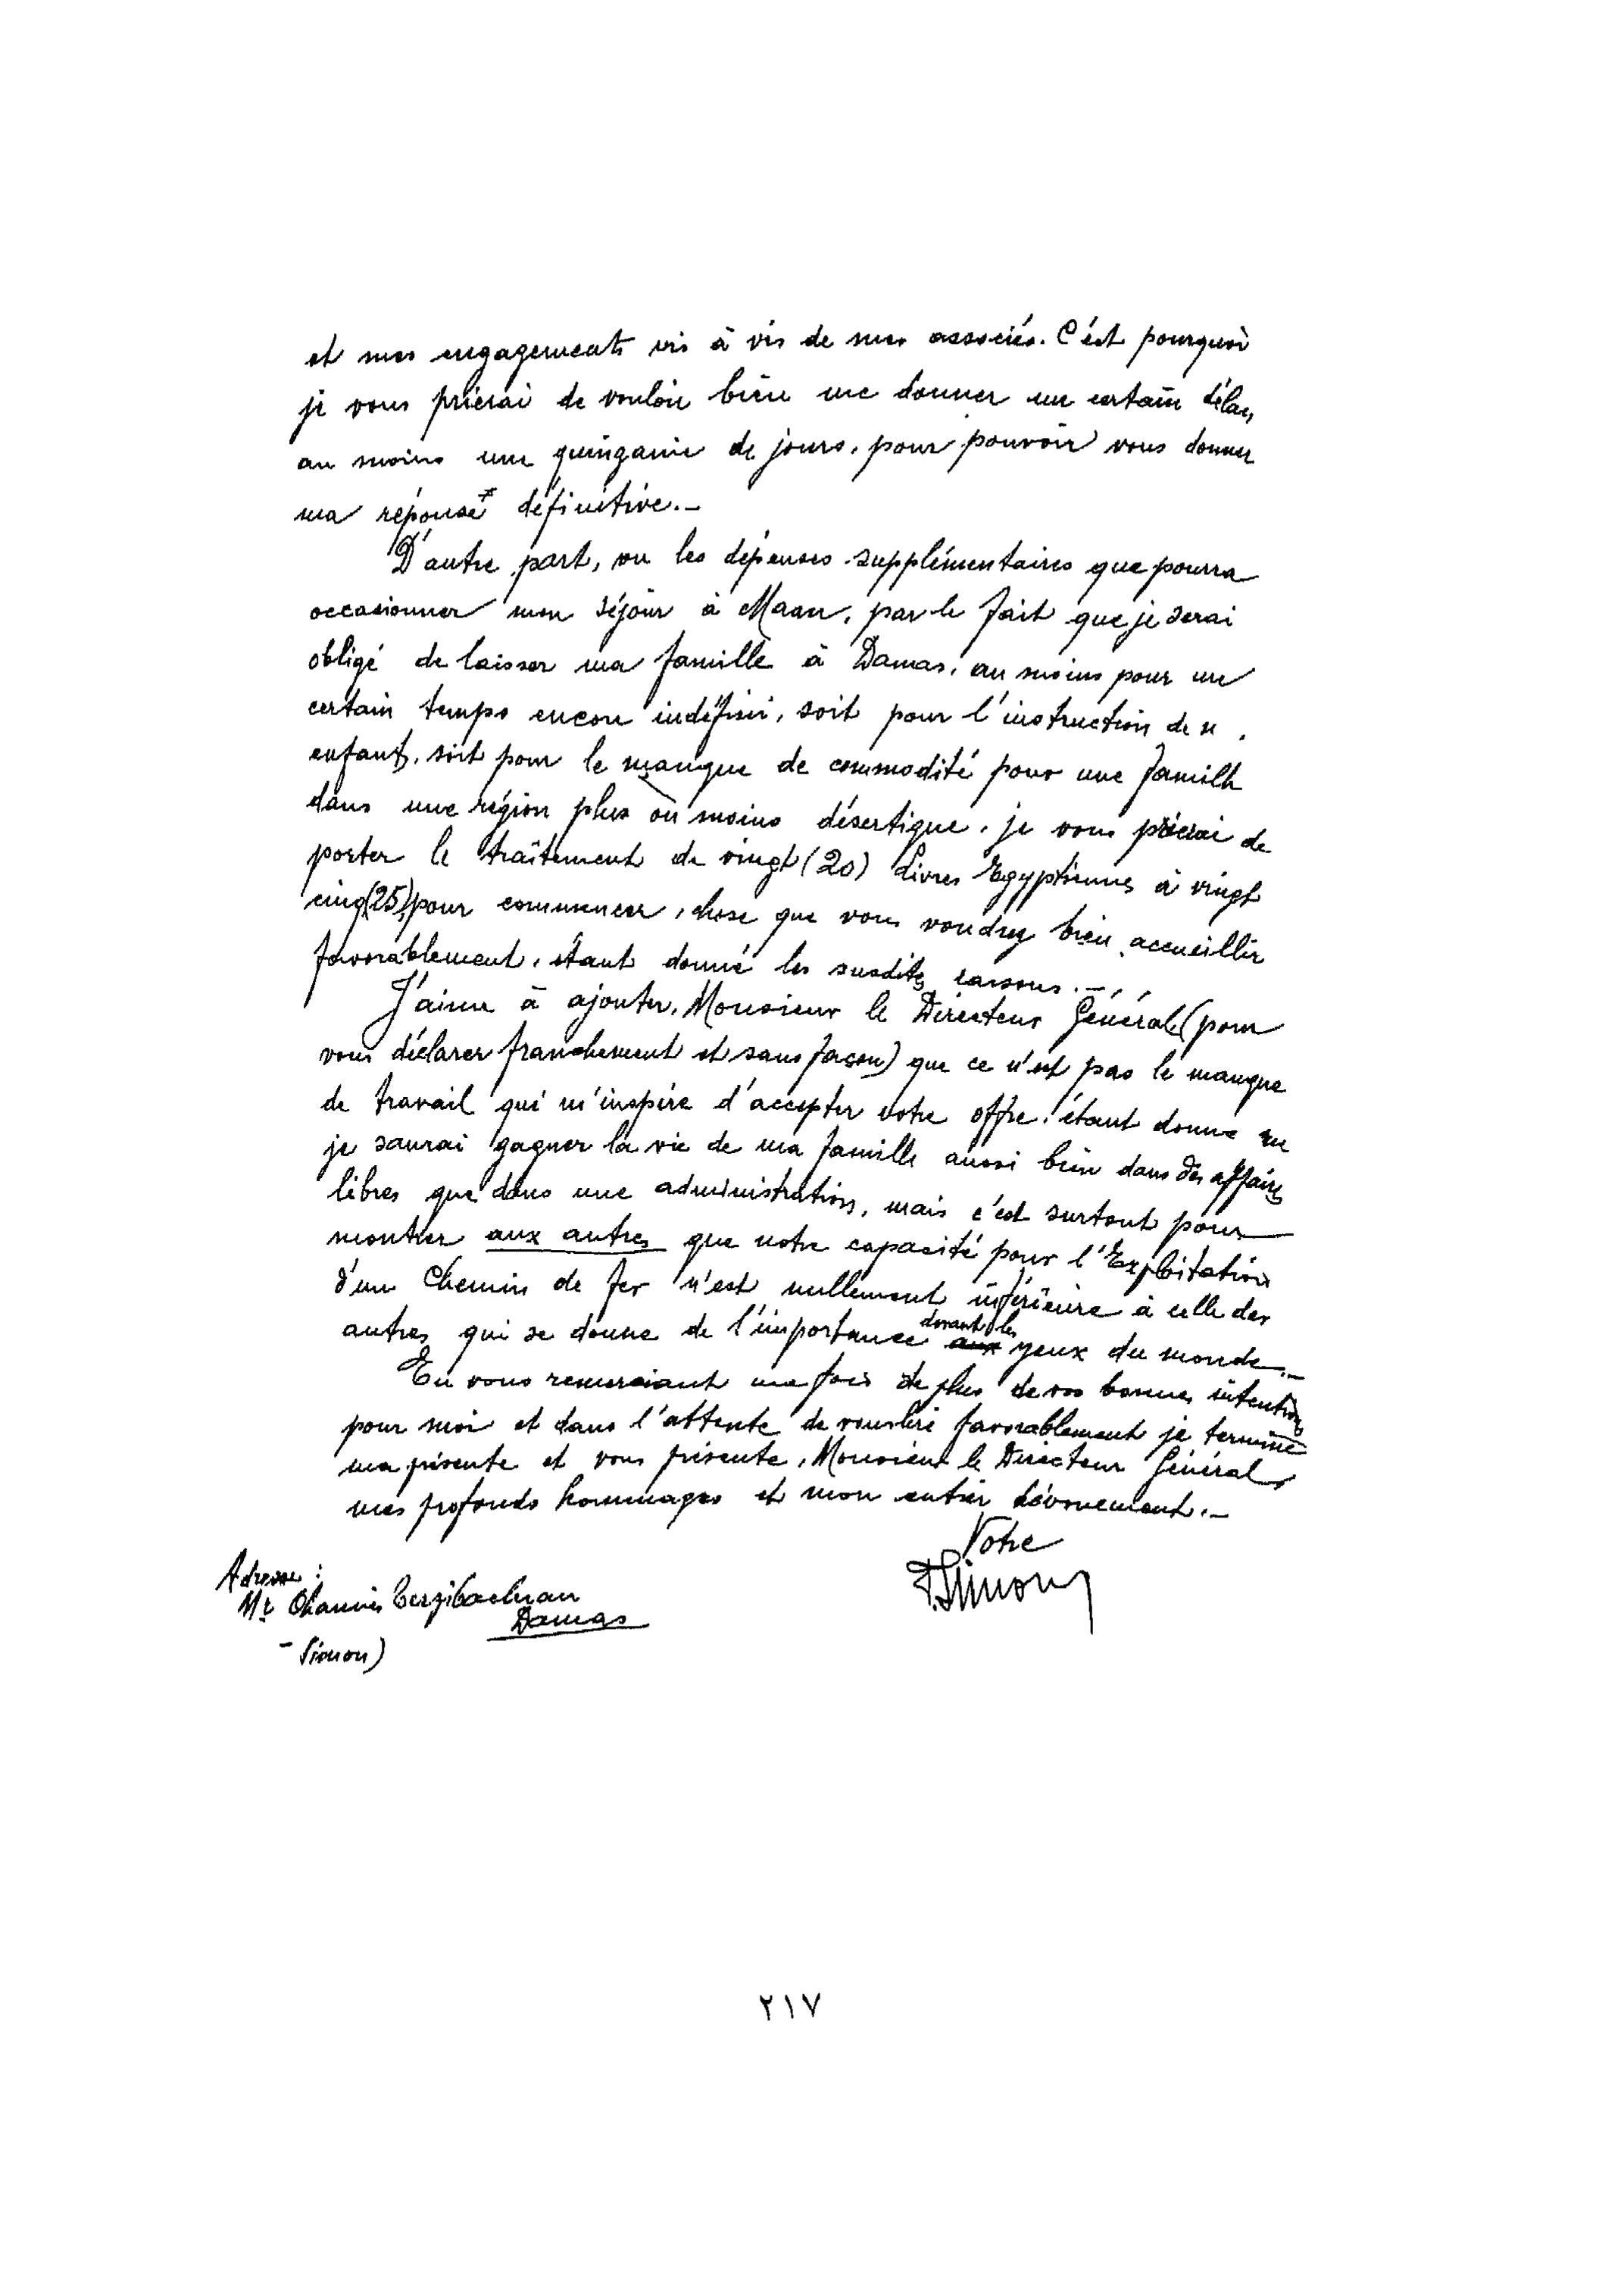 et mes engagements vis à vis de mes associés. C'est pourquoi
je vous prierai de vouloir bien me donner un certain délai,
au moins une quinzaine de jours, pour pouvoir vous donner
ma réponse définitive.-
D'autre part, vu les dépenses supplémentaires que pourra
occasionner mon séjour à Maan, par le fait que je serai
obligé de laisser ma famille à Damas, au moins pour un
certain temps encore indéfini, soit pour l'instruction de
enfants, soit pour le manque de commodité pour une famille
dans une région plus ou moins désertique, je vous prierai de
porter le traitement de vingt (20) Livres Egyptiennes à vingt
cinq (25) pour commencer, chose que vous voudrez bien accueillir
favorablement, étant donné les susdites raisons.-
J'aime à ajouter, Monsieur le Directeur Général (pour
vous déclarer franchement et sans façon) que ce n'est pas le manque
de travail qui m'inspire d'accepter votre offre, étant donné que
je saurai gagner la vie de ma famille aussi bien dans des affaires
libres que dans une administration, mais c'est surtout pour
montrer aux autres que notre capacité pour l'Exploitation
d'un Chemin de fer n'est nullement inférieure à celle des
autres qui se donne de l'importance devant les yeux du monde.-
En vous remerciant une fois de plus de vos bonnes intentions
pour moi et dans l'attente de favorablement je termine
ma présente et vous présente, Monsieur le Directeur Général,
mes profonds hommages et mon entier dévouement.-
Votre
Simon
Adresse :
Mr Ohannès
Damas
- Simon)
٢١٧